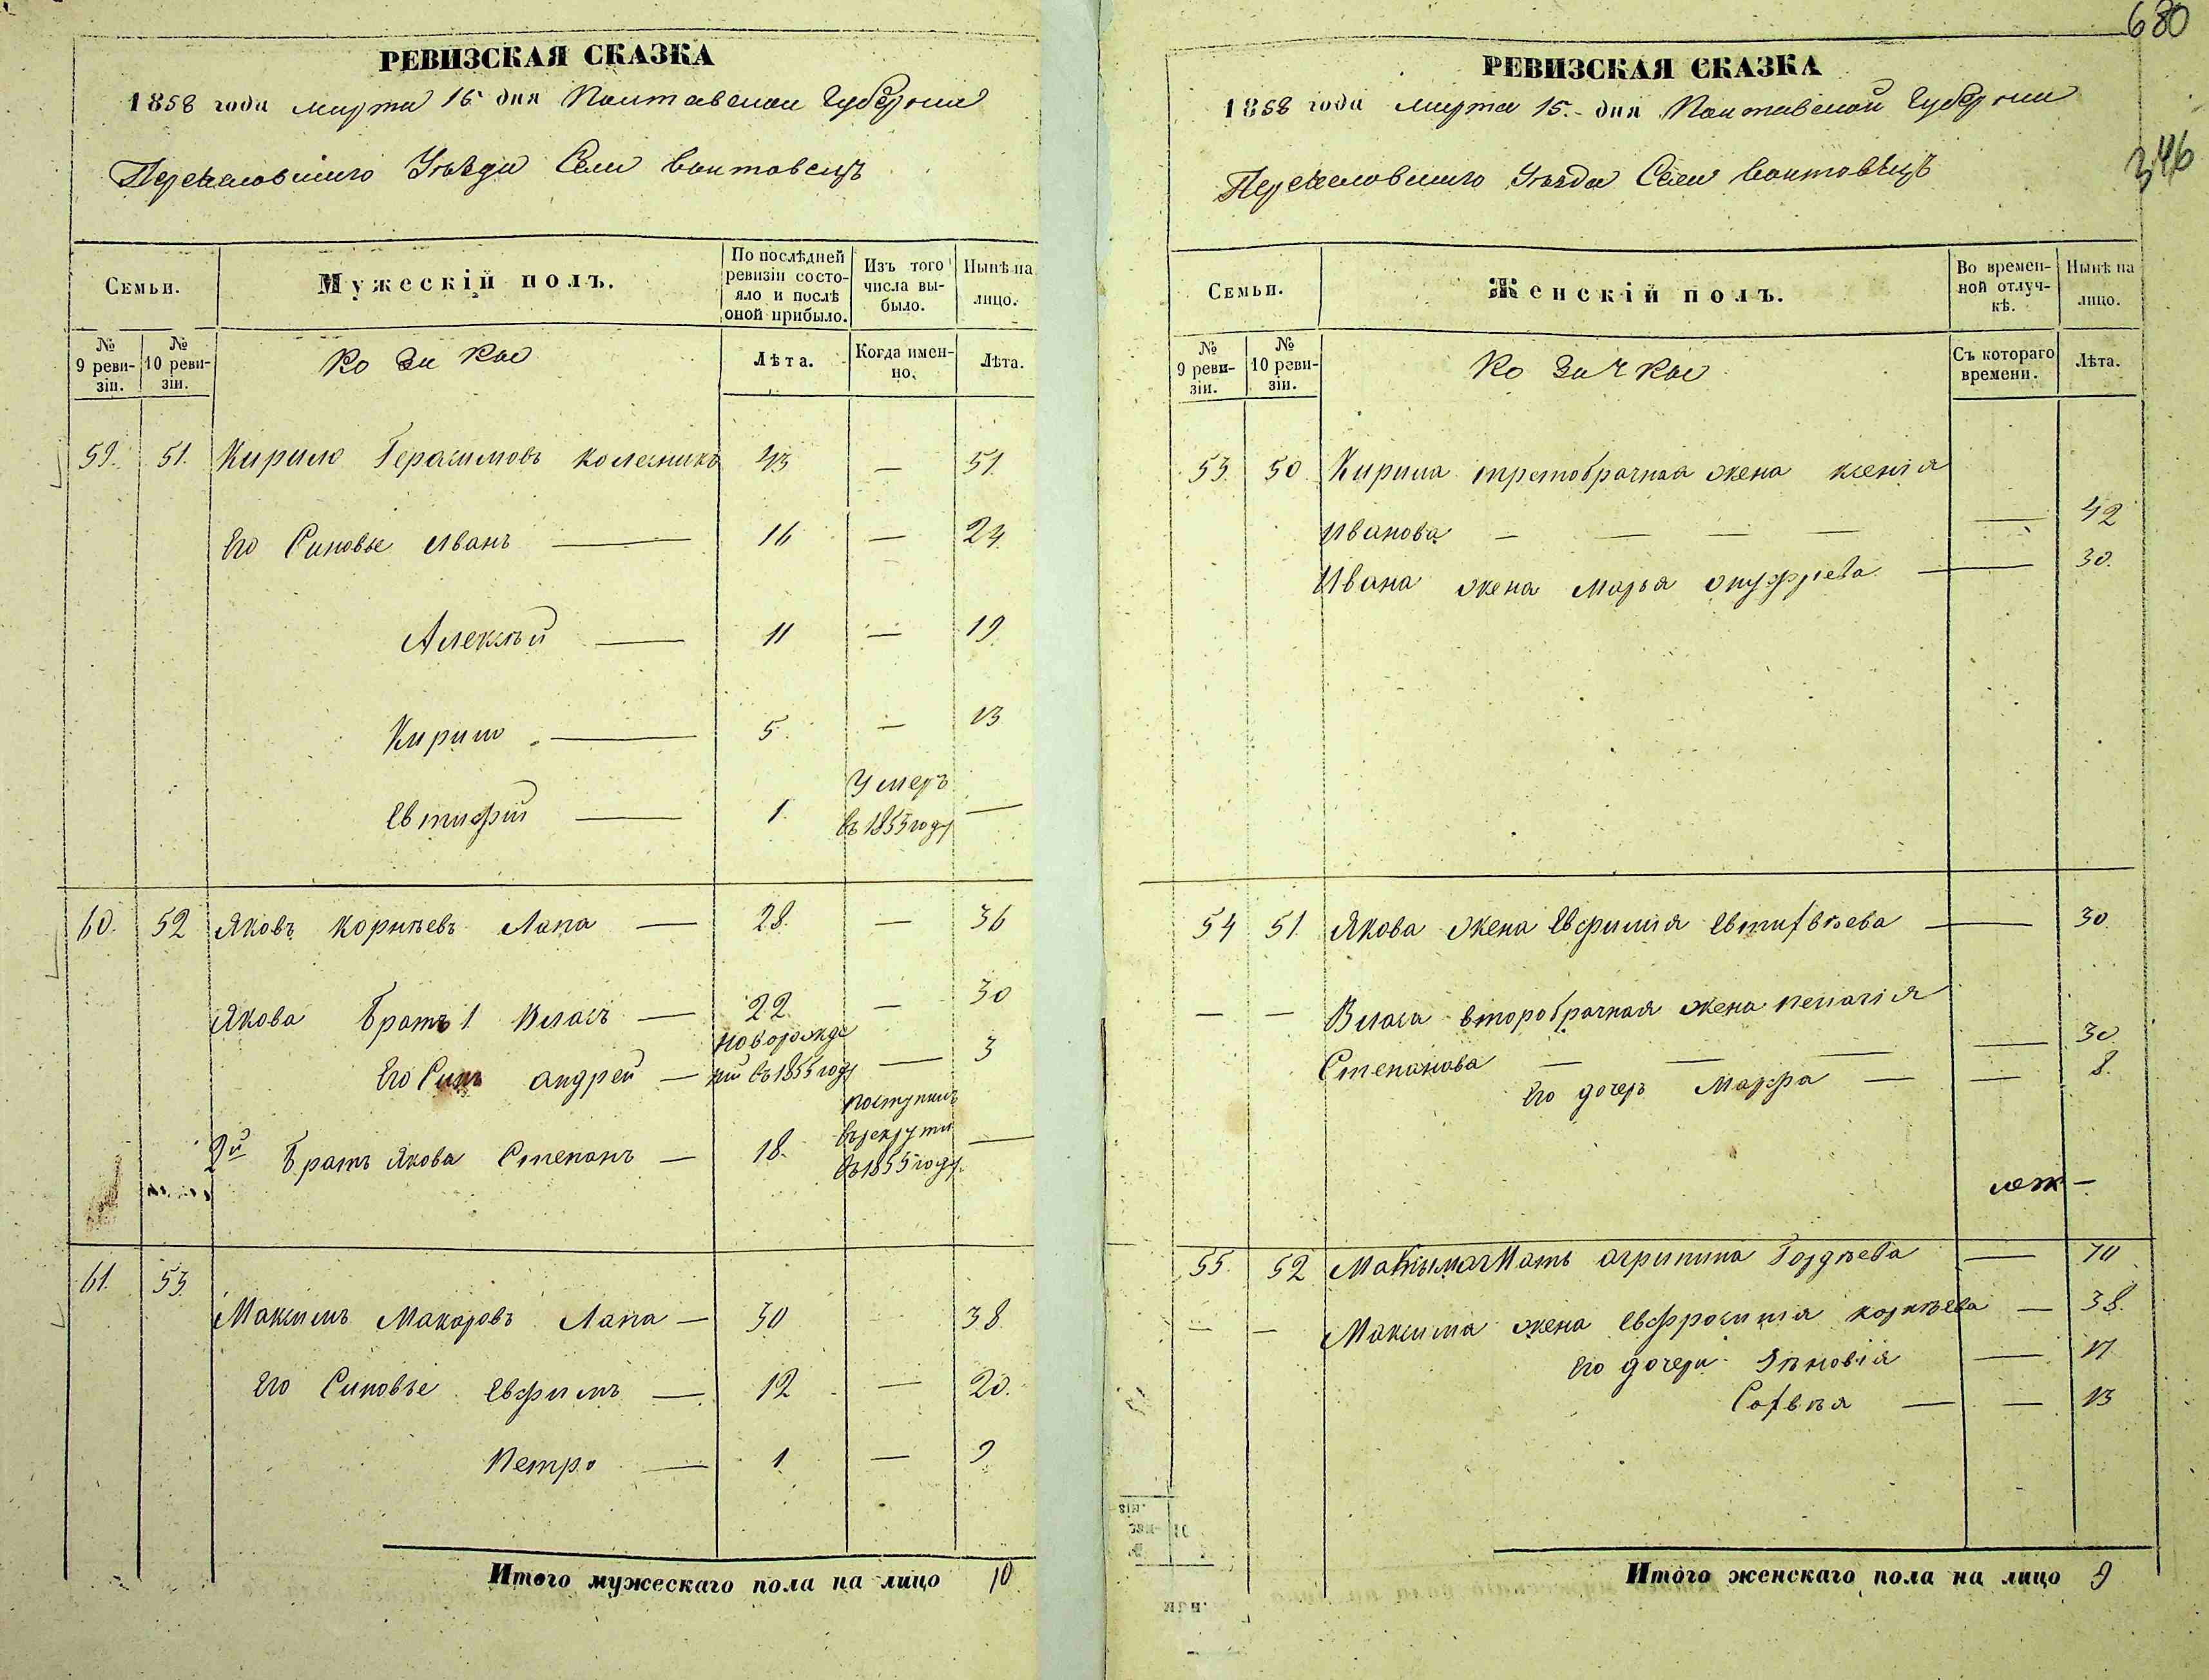 РЕВИЗСКАЯ СКАЗКА
1858 года марта 15 дня Полтавской Губернии
Переяславского Уѣзда Села Войтовецъ
Семьи.
Мужескій полъ.
По послѣдней ревизіи состояло и послѣ оной прибыло.
Изъ того числа выбыло.
Нынѣ на лицо.
№ 9 ревизіи.
№ 10 ревизіи.
Козаки
Лѣта.
Когда именно.
Лѣта.
59. 51. Кирило Герасимовъ Колесникъ 43 — 51.
Его Синовье Иванъ — 16 — 24.
Алексѣй — 11 — 19
Кирило — 5. — 13
Евтифій — 1. Умеръ въ 1855 году —
60. 52 Яковъ Корнѣевъ Лапа — 28. — 36
Якова Братъ 1 Власъ — 22. — 30
Его Синъ Андрей — новорожденій въ 1855 году — 3
2й Братъ Якова Степанъ — 18. поступилъ въ рекруты въ 1855 году —
61. 53.
Максимъ Макаровъ Лапа — 30 38.
Его Синовье Евфимъ — 12 — 20.
Петро — 1 — 9
Итого мужескаго пола на лицо 10
680
346
РЕВИЗСКАЯ СКАЗКА
1858 года марта 15. дня Полтавской Губернии
Переяславского Уѣзда Села Войтовѣцъ
Семьи.
Женскій полъ.
Во временной отлучкѣ.
Нынѣ на лицо.
№ 9 ревизіи.
№ 10 ревизіи.
Козачки
Съ котораго времени.
Лѣта.
53. 50 Кирила третобрачная жена Ксенія
Иванова — — — — — 42
Ивана жена Марья Онуфріева — 30.
54 51. Якова жена Евфимія Евтифѣева — 30.
— — Власа второбрачная жена Пелагія
Степанова — — — — 30
Его дочерь Марфа — — 8.
55. 52 Мать Агрипина Гордѣева — 70
— — Максима жена Евфросинія Корнѣева — 38.
Его дочери Зѣновія — 17
Софѣя — — 13
Итого женскаго пола на лицо 9